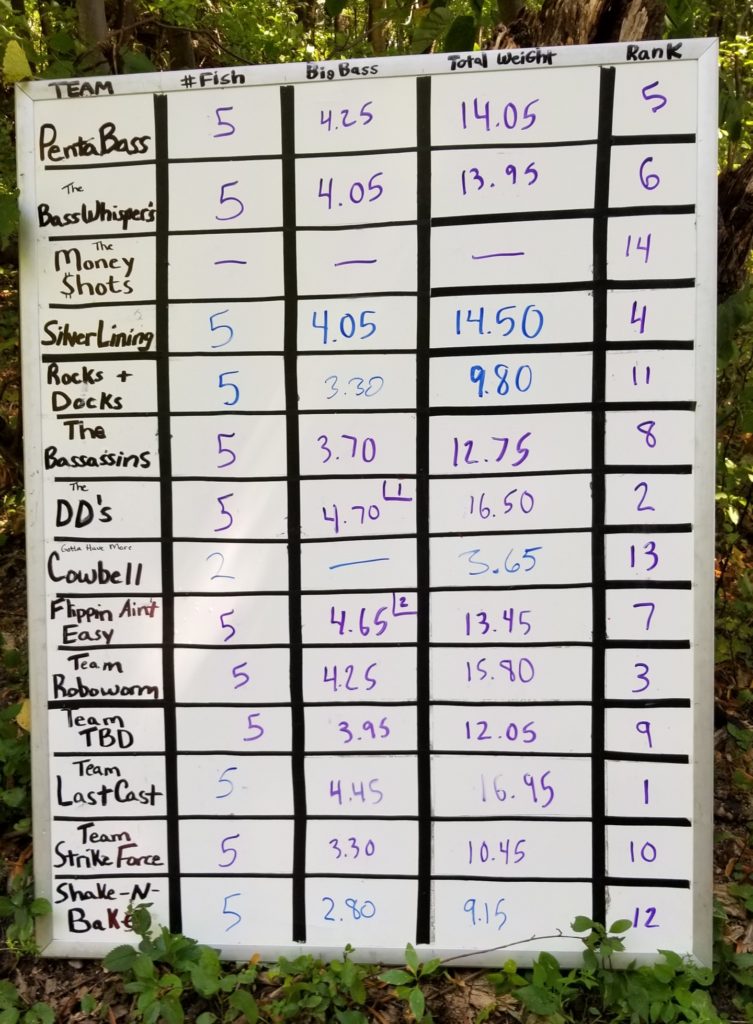 TEAM #Fish Big Bass Total Weight Rank
PentaBass 5 4.25 14.05 5
The
BassWhisper's 5 4.05 13.95 6
The
Money
$hots — — — 14
SilverLining 5 4.05 14.50 4
Rocks +
Docks 5 3.30 9.80 11
The
Bassassins 5 3.70 12.75 8
The
DD's 5 4.70 1 16.50 2
Gotta Have More
Cowbell 2 — 3.65 13
Flippin Ain't
Easy 5 4.65 2 13.45 7
Team
Roboworm 5 4.25 15.80 3
Team
TBD 5 3.95 12.05 9
Team
LastCast 5 4.45 16.95 1
Team
Strike Force 5 3.30 10.45 10
Shake-N-
Bake 5 2.80 9.15 12